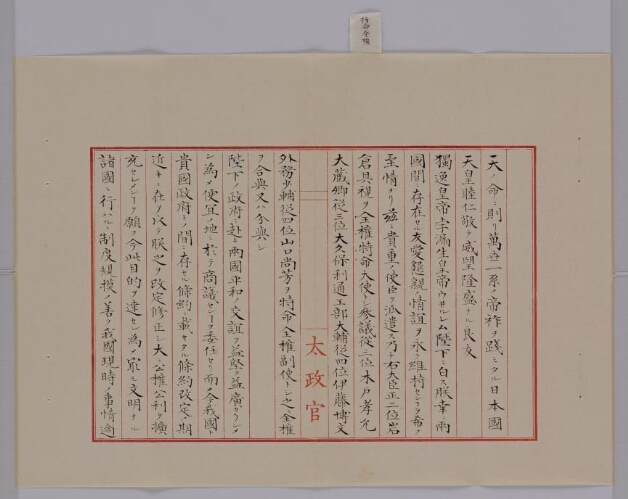 天ノ命ニ則リ萬世一系ノ帝祚ヲ踐ミタル日本國
天皇睦仁敬テ威望隆盛ナル良友
獨逸皇帝孛漏生皇帝ウヰルレム陛下ニ白ス朕幸ニ兩
國間ニ存在セル友愛懇親ノ情誼ヲ永ク維持センヿヲ希フ
至情ヨリ茲ニ貴重ノ使臣ヲ派遣ス乃チ右大臣正二位岩
倉具視ヲ全權特命大使トシ參議從三位木戸孝允
大藏卿從三位大久保利通工部大輔從四位伊藤博文
太政官
外務少輔從四位山口尚芳ヲ特命全權副使トシ之ニ全權
ヲ合與又ハ分與シ
陛下ノ政府ニ赴キ兩國平和ノ交誼ヲ益堅ク益廣カラシメ
ン為メ便宜ノ地ニ於テ商議センヿヲ委任セリ而メ今我國ト
貴國政府トノ間ニ存セル條約ニ載セタル條約改定ノ期
近キニ在ルヲ以テ朕之ヲ改定修正シ大ニ公權公利ヲ擴
充セシメンヿヲ願フ今此目的ヲ達セン為メ最文明ナル
諸國ニ行ハルヽ制度規模ノ善ク我國現時ノ事情ニ適